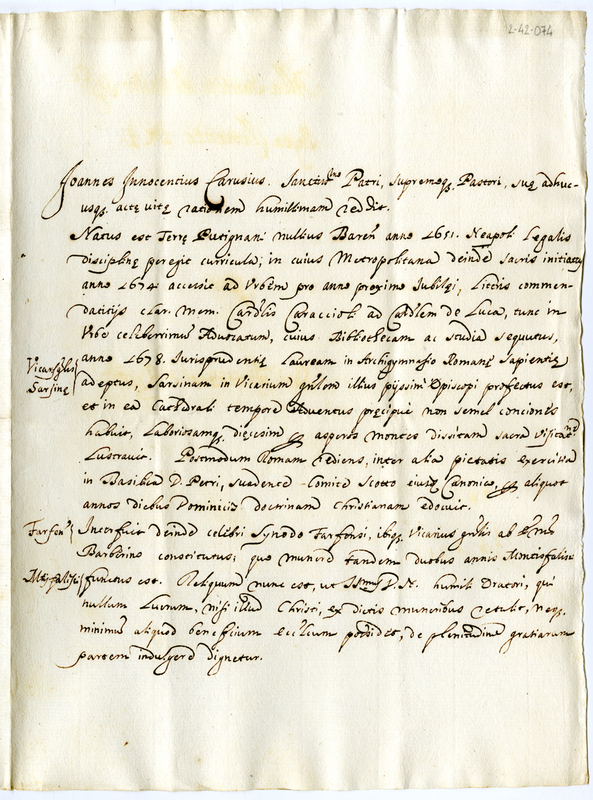 2-42-074
Joannes Innocentius Carusius. Sanctiss.mo Patri, Supremoq; Pastori, suę adhuc-
usq; actę vitę rationem humillimam reddit.
Natus est Terrę Putignani nullius Baren. anno 1651. Neapoli Legalis
disciplinę peregit curricula; in cuius Metropolitana deinde sacris initiatus
anno 1674. accessit ad Urbem pro anno proximo Jubilęi, Literis commen-
datitijs clar. mem. Card.lis Caraccioli ad Card.lem de Luca, tunc in
Urbe celeberrimum Advocatum, cuius Bibliothecam ac studia sequutus,
anno 1678. Jurisprudentię Lauream in Archigymnasio Romanę Sapientię
Vicar.s g.lis
Sarsinę
adeptus, Sarsinam in Vicarium gn.lem illius pijssimi Episcopi profectus est,
et in ea Cathedrali tempore Adventus pręcipuè non semel conciones
habuit, Laboriosamq; diœcesim per asperos montes dissitam sacra visitat.ne
Lustravit. Postmodum Romam rediens, inter alia pietatis exercitia
in Basilica D. Petri, suadente Comite Scotto eiusd. Canonico, per aliquot
annos diebus Dominicis doctrinam Christianam edocuit.
Farfen.
Interfuit deinde celebri Synodo Farfensi, ibiq; Vicarius gn.lis ab Em.o
Barberino constitutus; quo munere tandem duobus annis Montisfalisci
functus est. Reliquum nunc est, ut SS.mus D. N. humili Oratori, qui
nullum Lucrum, nisi illud Christi, ex dictis muneribus retulit, neq;
minimum aliquod beneficium eccl.cum possidet, de plenitudine gratiarum
partem indulgere dignetur.